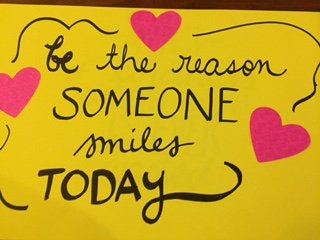 be the reason
SOMEONE
smiles
TODAY